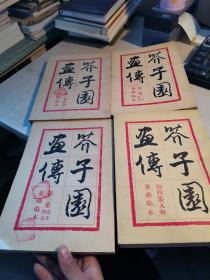 芥子園
畫傳
芥子園
畫傳
芥子園
畫傳
巢勳臨本
芥子園
畫傳
第四集人物
巢勳臨本